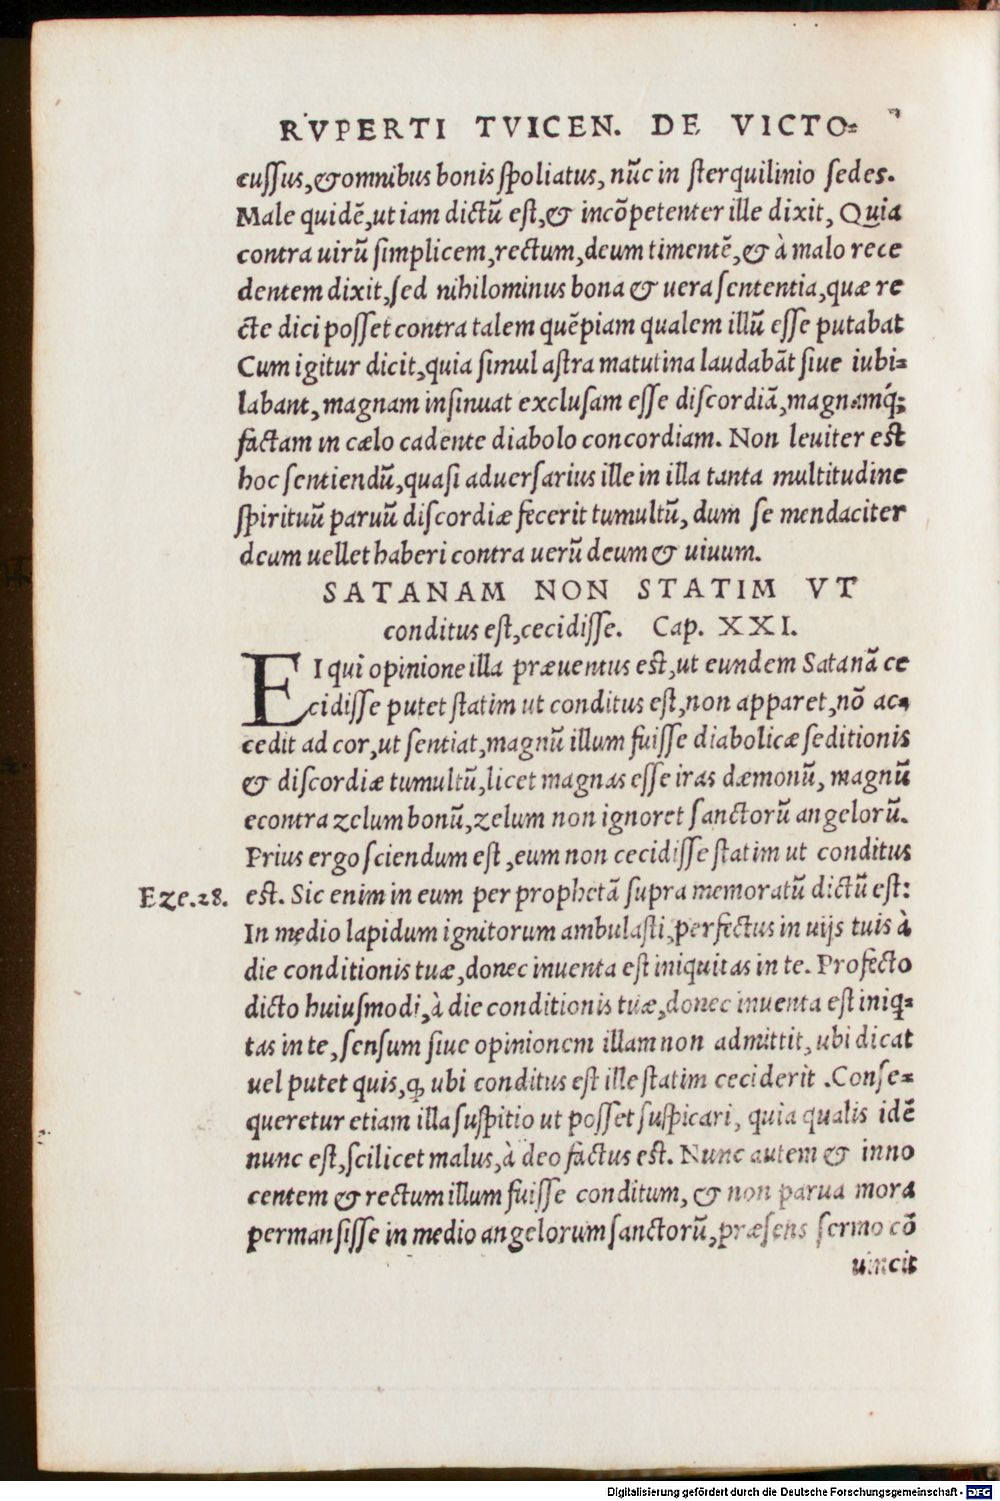 RVPERTI TVICEN. DE VICTO=
cussus,& omnibus bonis spoliatus, nūc in sterquilinio sedes.
Male quidē,ut iam dictū est,& incōpetenter ille dixit, Quia
contra uirū simplicem,rectum,deum timentē,& à malo rece
dentem dixit,sed nihilominus bona & uera sententia,quæ re
cte dici posset contra talem quēpiam qualem illū esse putabat
Cum igitur dicit,quia simul astra matutina laudabāt siue iubi=
labant, magnam insinuat exclusam esse discordiā,magnamq́;
factam in cælo cadente diabolo concordiam. Non leuiter est
hoc sentiendū,quasi aduersarius ille in illa tanta multitudine
spirituū paruū discordiæ fecerit tumultū, dum se mendaciter
deum uellet haberi contra uerū deum & uiuum.
SATANAM NON STATIM VT
conditus est,cecidisse. Cap. XXI.
EI qui opinione illa præuentus est,ut eundem Satanā ce
cidisse putet statim ut conditus est,non apparet,nō ac=
cedit ad cor,ut sentiat,magnū illum fuisse diabolicæ seditionis
& discordiæ tumultū,licet magnas esse iras dæmonū, magnū
econtra zelum bonū,zelum non ignoret sanctorū angelorū.
Prius ergo sciendum est ,eum non cecidisse statim ut conditus
Eze.28. est. Sic enim in eum per prophetā supra memoratū dictū est:
In medio lapidum ignitorum ambulasti,perfectus in uijs tuis à
die conditionis tuæ,donec inuenta est iniquitas in te. Profecto
dicto huiusmodi,à die conditionis tuæ,donec inuenta est iniq=
tas in te,sensum siue opinionem illam non admittit, ubi dicat
uel putet quis,ꝙ ubi conditus est ille statim ceciderit .Conse=
queretur etiam illa suspitio ut posset suspicari, quia qualis idē
nunc est,scilicet malus,à deo factus est. Nunc autem & inno
centem & rectum illum fuisse conditum, & non parua mora
permansisse in medio angelorum sanctorū,præsens sermo cō
uincit
Digitalisierung gefördert durch die Deutsche Forschungsgemeinschaft - DFG